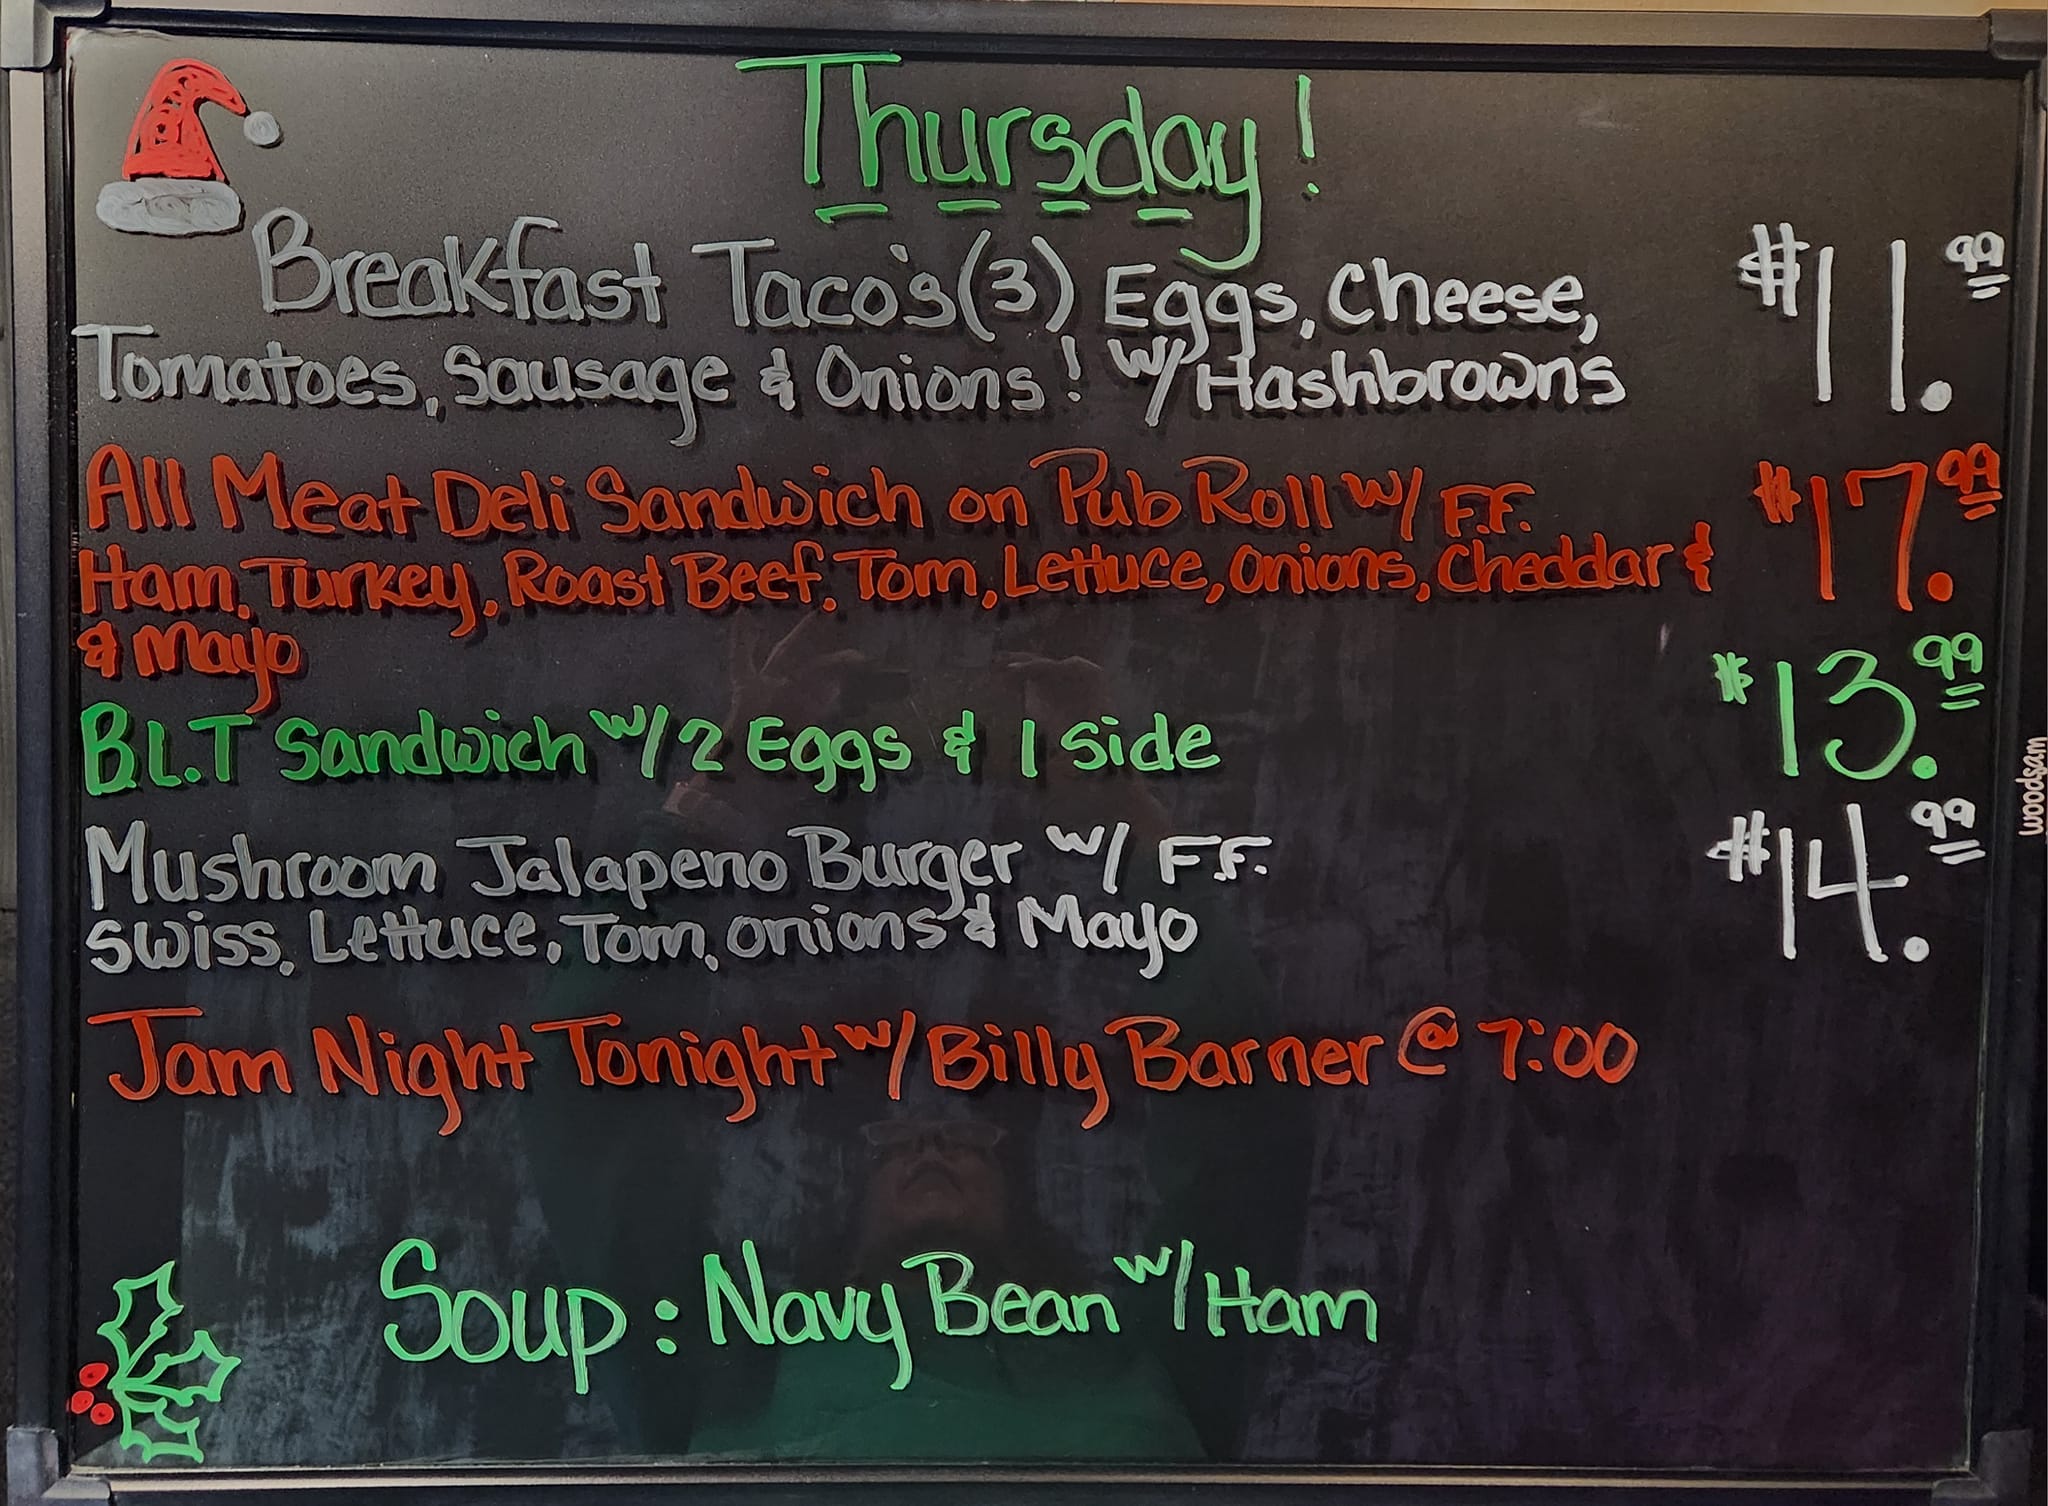 Thursday!
Breakfast Taco's (3) Eggs, Cheese, $11.99
Tomatoes, Sausage & Onions! w/ Hashbrowns
All Meat Deli Sandwich on Pub Roll w/ F.F. $17.99
Ham, Turkey, Roast Beef, Tom, Lettuce, Onions, Cheddar &
& Mayo
B.L.T Sandwich w/ 2 Eggs & 1 Side $13.99
Mushroom Jalapeno Burger w/ F.F. $14.99
Swiss, Lettuce, Tom, Onions & Mayo
Jam Night Tonight w/ Billy Barner @ 7:00
Soup: Navy Bean w/ Ham
woodsam